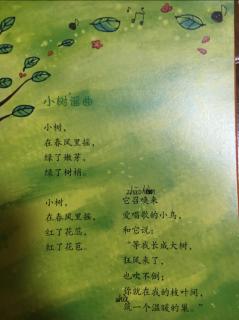 小树谣曲
小树，
在春风里摇，
绿了嫩芽，
绿了树梢。
小树，
在春风里摇，
红了花蕊，
红了花苞。
zhāohuàn
它召唤来
爱唱歌的小鸟，
和它说：
“等我长成大树，
狂风来了，
也吹不倒；
你就在我的枝叶间，
筑一个温暖的巢。”